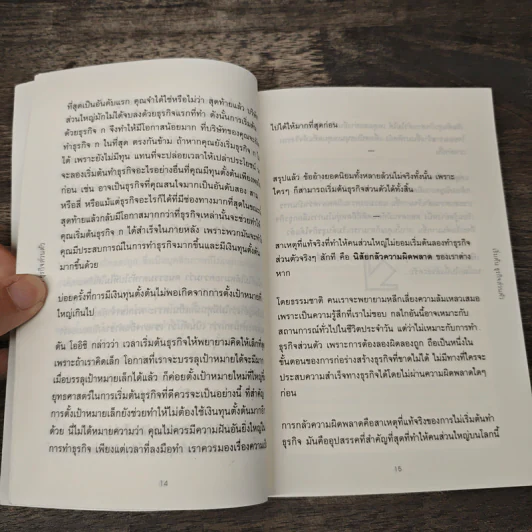 ที่สุดเป็นอันดับแรก คุณจำได้ใช่หรือไม่ว่า สุดท้ายแล้ว บริษัท
ส่วนใหญ่มักไม่ได้จบลงด้วยธุรกิจแรกที่ทำ ดังนั้นการเริ่มต้น
ด้วยธุรกิจ ก จึงทำให้มีโอกาสน้อยมาก ที่บริษัทของคุณจะยัง
ทำธุรกิจ ก ในที่สุด ตรงกันข้าม ถ้าหากคุณยังเริ่มธุรกิจ ก ไม่
ได้ เพราะยังไม่มีทุน แทนที่จะปล่อยเวลาให้เปล่าประโยชน์
จะลองเริ่มต้นทำธุรกิจอะไรอย่างอื่นที่คุณมีทุนตั้งต้นเพียงพอ
ก่อน เช่น อาจเป็นธุรกิจที่คุณสนใจมากเป็นอันดับสอง สาม
หรือสี่ หรือแม้แต่ธุรกิจอะไรก็ได้ที่มีช่องทางมากที่สุดในขณะนี้
สุดท้ายแล้วกลับมีโอกาสมากกว่าที่ธุรกิจเหล่านั้นจะช่วยทำให้
คุณเริ่มต้นธุรกิจ ก ได้สำเร็จในภายหลัง เพราะพวกมันจะทำให้
คุณมีประสบการณ์ในการทำธุรกิจมากขึ้นและมีเงินทุนตั้งต้น
มากขึ้นด้วย
บ่อยครั้งที่การมีเงินทุนตั้งต้นไม่พอเกิดจากการตั้งเป้าหมายที่
ใหญ่เกินไป
ตัน โออิชิ กล่าวว่า เวลาเริ่มต้นธุรกิจให้พยายามคิดให้เล็กที่สุด
เพราะถ้าเราคิดเล็ก โอกาสที่เราจะบรรลุเป้าหมายได้จะมีมาก
เมื่อบรรลุเป้าหมายเล็กได้แล้ว ก็ค่อยตั้งเป้าหมายใหม่ที่ใหญ่ขึ้น
ยุทธศาสตร์ในการเริ่มต้นธุรกิจที่ดีควรจะเป็นอย่างนี้ ที่สำคัญ
การตั้งเป้าหมายเล็กยังช่วยทำให้ไม่ต้องใช้เงินทุนตั้งต้นมากอีก
ด้วย นี่ไม่ได้หมายความว่า คุณไม่ควรมีความฝันอันยิ่งใหญ่ใน
การทำธุรกิจ เพียงแต่เวลาที่ลงมือทำ เราควรมองเรื่องความเป็น
14
ไปได้ให้มากที่สุดก่อน
สรุปแล้ว ข้ออ้างยอดนิยมทั้งหลายล้วนไม่จริงทั้งนั้น เพราะ
ใครๆ ก็สามารถเริ่มต้นธุรกิจส่วนตัวได้ทั้งสิ้น
สาเหตุที่แท้จริงที่ทำให้คนส่วนใหญ่ไม่ยอมเริ่มต้นลองทำธุรกิจ
ส่วนตัวจริงๆ สักที คือ นิสัยกลัวความผิดพลาด ของเราต่าง
หาก
โดยธรรมชาติ คนเราจะพยายามหลีกเลี่ยงความล้มเหลวเสมอ
เพราะเป็นความรู้สึกที่เราไม่ชอบ กลไกอันนี้อาจเหมาะกับ
สถานการณ์ทั่วไปในชีวิตประจำวัน แต่ว่าไม่เหมาะกับการทำ
ธุรกิจส่วนตัว เพราะการต้องลองผิดลองถูก ถือเป็นหนึ่งใน
ขั้นตอนของการก่อร่างสร้างธุรกิจที่ขาดไม่ได้ ไม่มีทางที่ใครจะ
ประสบความสำเร็จทางธุรกิจได้โดยไม่ผ่านความผิดพลาดใดๆ
ก่อน
การกลัวความผิดพลาดคือสาเหตุที่แท้จริงของการไม่เริ่มต้นทำ
ธุรกิจ มันคืออุปสรรคที่สำคัญที่สุดที่ทำให้คนส่วนใหญ่บนโลกนี้
15